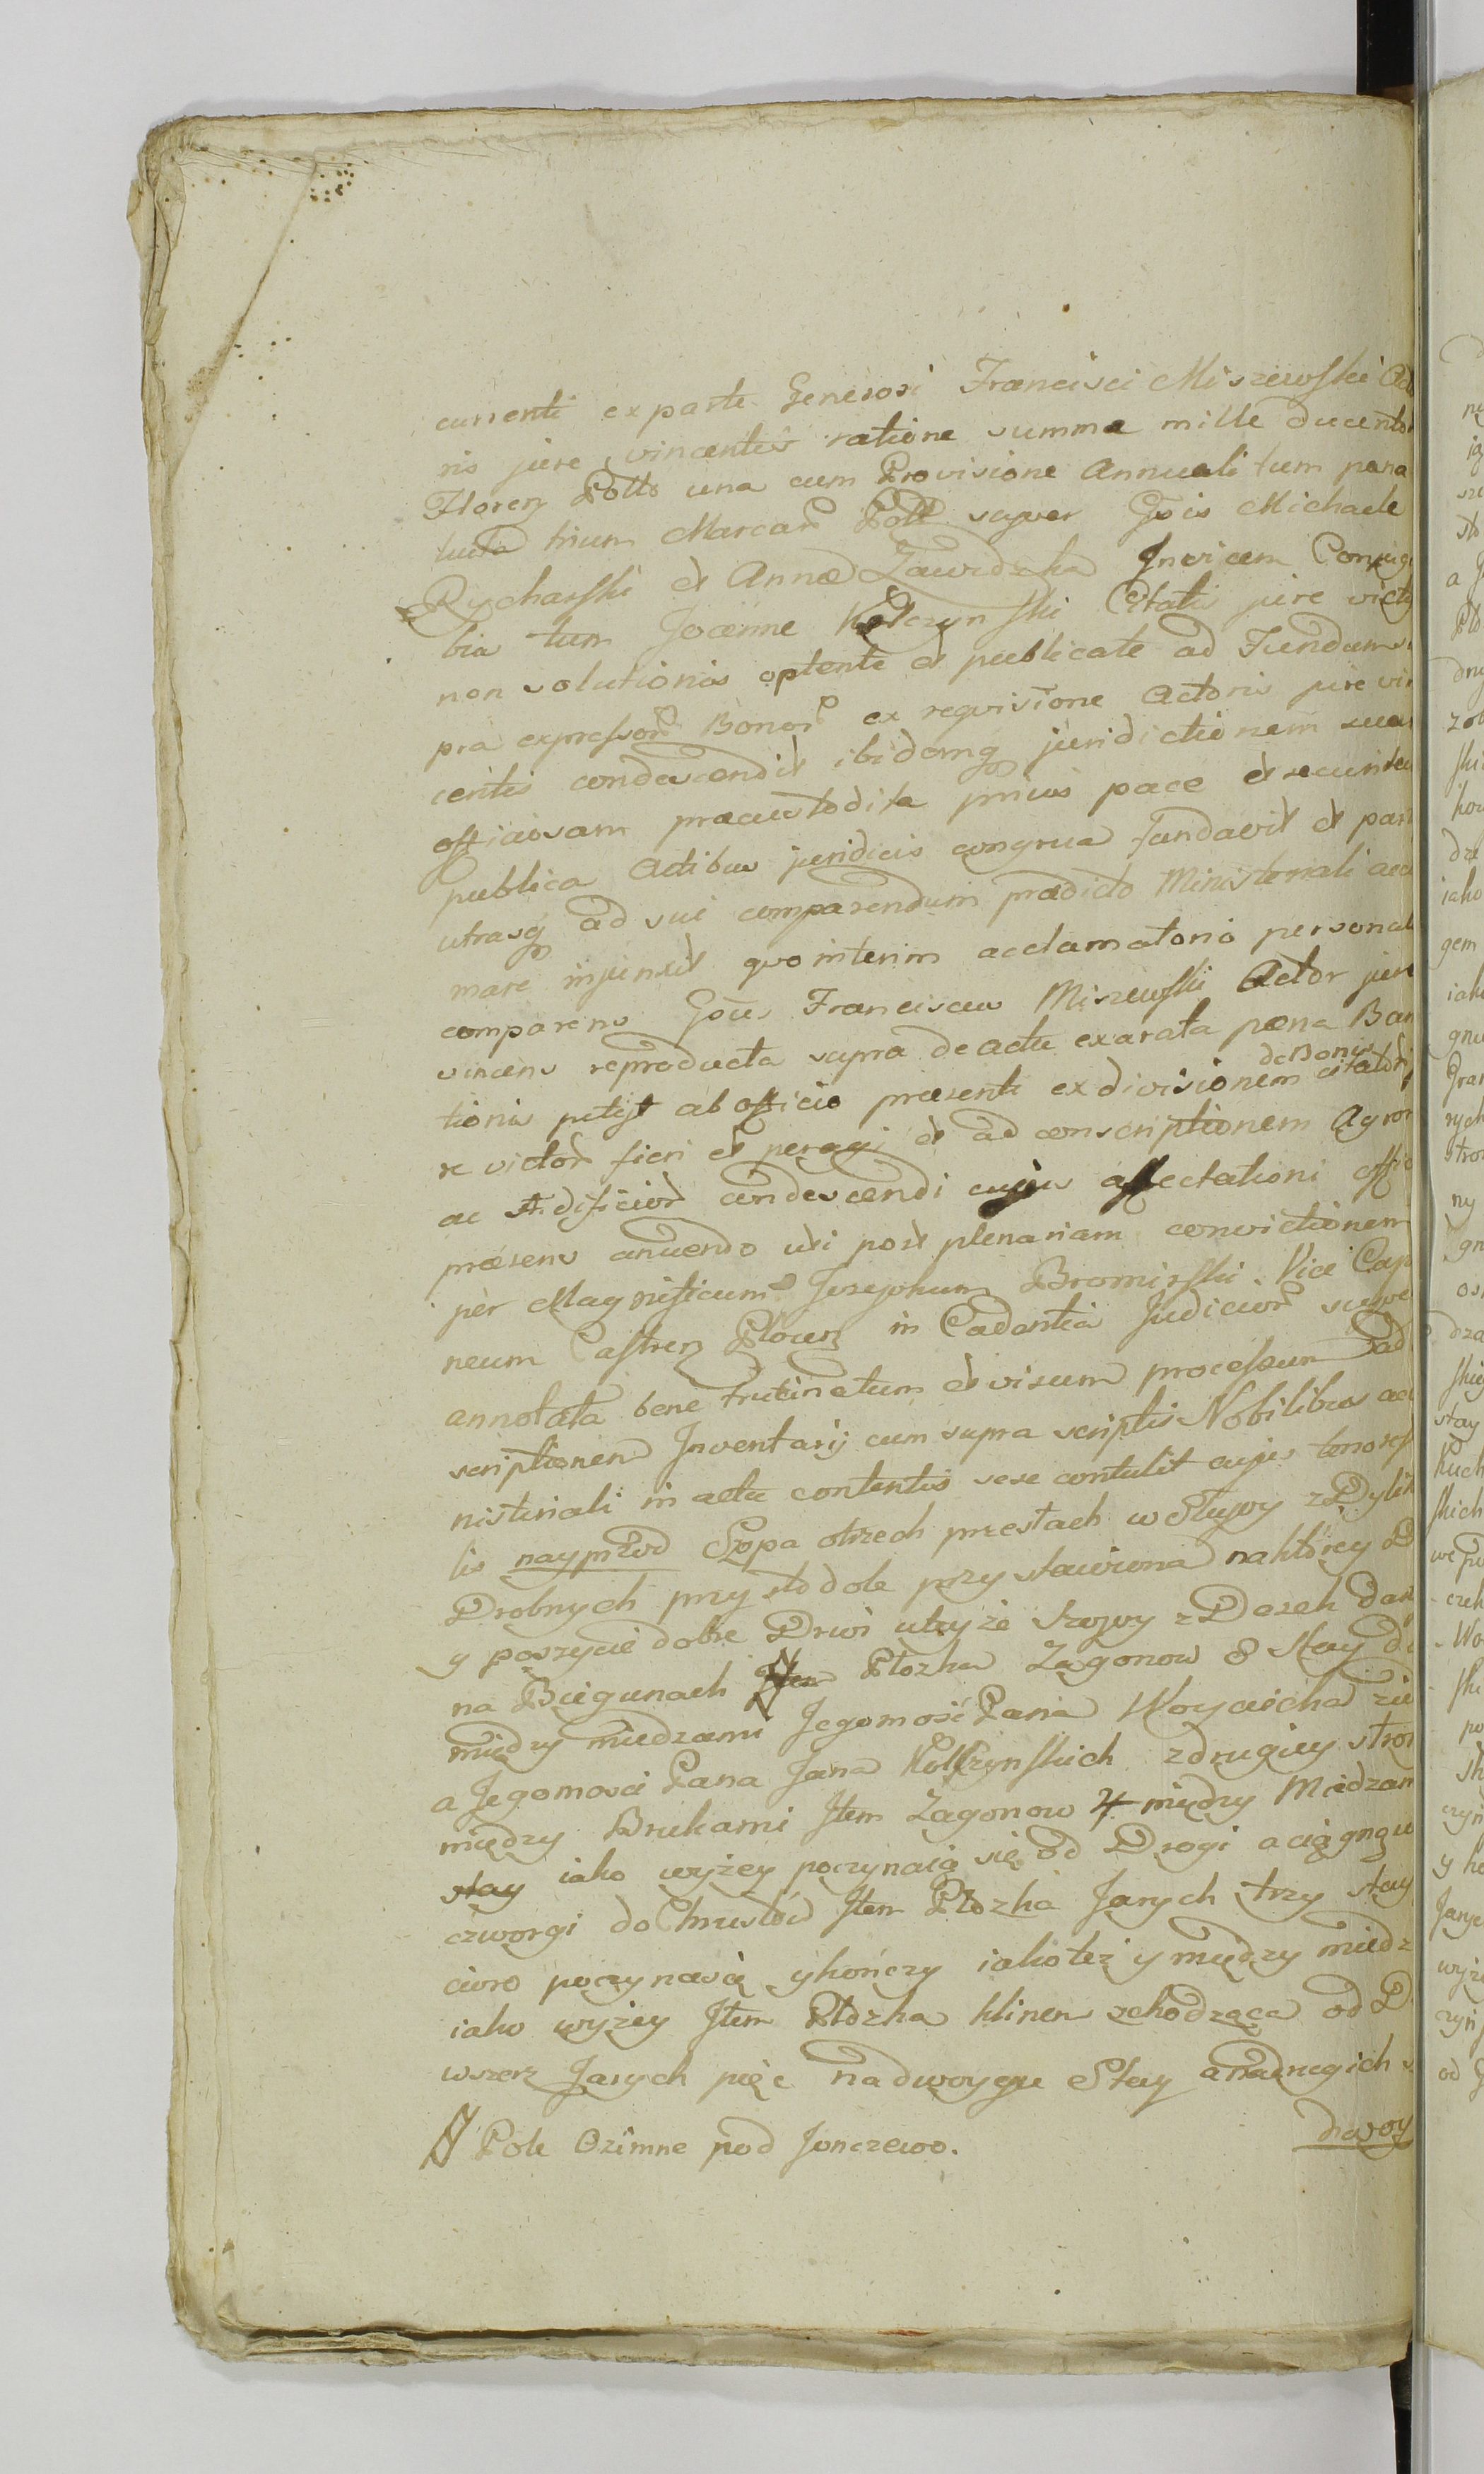 currenti ex parte Generosi Francisci Miszewski Acto
ris jure vincentis ratione summæ mille ducento
Floren Pollo una cum Provisione Annuali tum pœna
lucta trium Marcar Poll super Gsis Michaele
Rycharski et Anna Zawidzka Invicem Conjugi
bia tum Joanne Kolczynski Citatis jure victis
non solutionis optente et publicate ad Fundum su
pra expressor Bonor ex requisitione Actoris jure vin
centis condescendit ibidemq juridictionem suam
officiosam præcustodita prius pace et securitate
publica Actibus juridicis congrua fundavit et part
utrasq ad sui comparendum prædicto Ministeriali accl
mare injunxit quo interim acclamatorio personali
comparens Gsus Franciscus Miszewski Actor jure
vincens reproducta supra de actu exarata pœna Ban
tionis petyt ab officio præsenti exdivisionem de Bonis citator
re victor fieri et peragi et ad conscriptionem Agror
ac Ædificior condescendi cujus affectationi offici
præsens annuendo uti post plenariam convictionem
per Magnificum Josephum Bromirski Vice Cap
neum Castren Plocen in Cadentia Judicior supe
annotata bene trutinatum et visum processum ad
scriptionem Inventarij cum supra scriptis Nobilibus ac
nisteriali in actu contentis sese contulit cujus tenor est
lis nayprzod Szopa o trzech przestach w Słupy z Dylik
Drobnych przy stodole przystawiona na ktorey D
y poszycie dobre Drwi u teyże Szopy z Desek
na Biegunach Item Płozka Zagonow 8 Stay
między miedzami Jegomość Pana Woyciecha
a Jegomosci Pana Jana Kolczynskich z drugiey stron
między Brukami Item Zagonow 4 między Miedzam
stay iako wyżey poczynaią się od Drogi a ciągną
czworgi do Chrustów Item Płozka Jarych trzy stay
cioro poczynasię y kończy iako też y między miedz
iako wyżey Item Płozka klinem zchodząca od D
wszerz Jarych pięc na dwoygu Stay a na drugich
Pole Ozimne pod Jonczewo.
dwoy